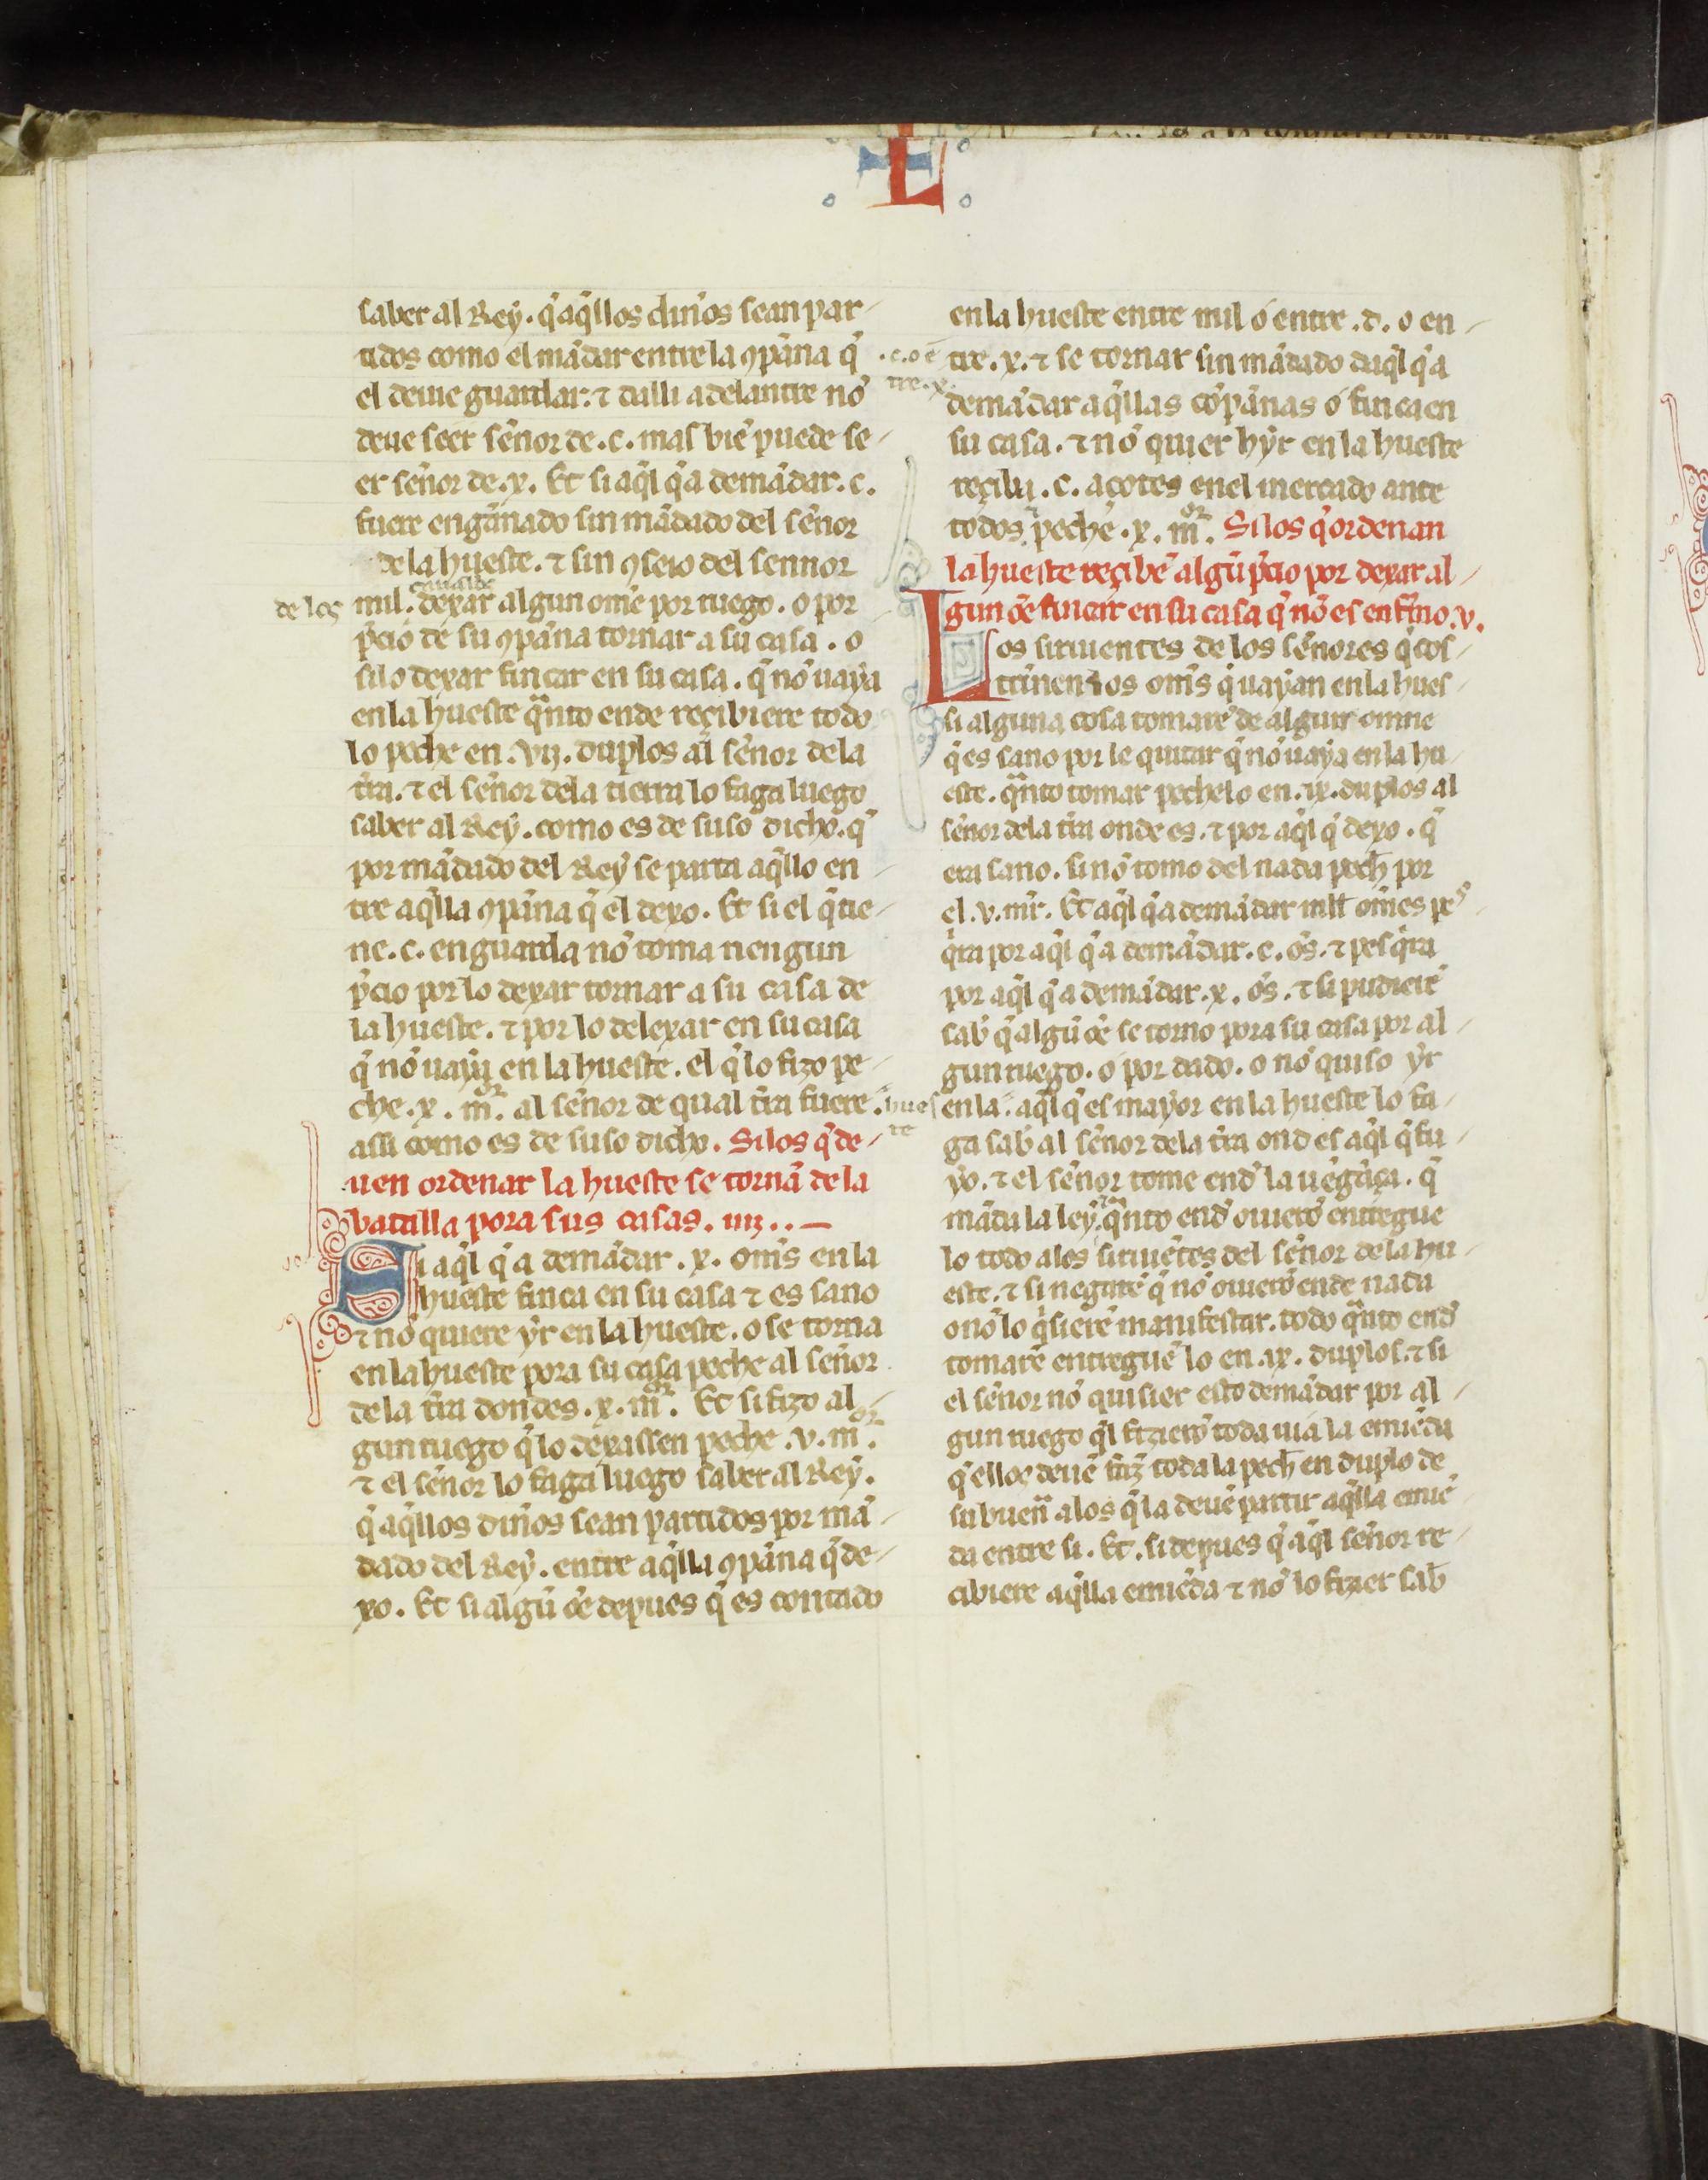 L
saber al Rey. q̃ aq̃llos din̄os sean par-
tidos como el mãdar entre la ꝯpãna q̃
el deue guardar: ⁊ dalli adelantre nõ
deue seer sẽnor de .c. mas biẽ puede se-
er sẽnor de .x. Et si aq̃l q̃ a demãdar .c.
fuere engãnado sin mãdado del sẽnor
de la hueste. ⁊ sin ꝯseio del sennor
de los mil. dexar algun omẽ por ruego. o por
p̃cio de su ꝯpãna tornar a su casa. o
si lo dexar fincar en su casa. q̃ nõ uaya
en la hueste q̃nto ende reçibiere todo
lo peche en .vij. duplos al sẽnor de la
tr̃ra. ⁊ el sẽnor dela tierra lo faga luego
saber al Rey. como es de suso dicho. q̃
por mãdado del Rey se parta aq̃llo en
tre aq̃lla ꝯpãna q̃ el dexo. Et si el q̃ tie-
ne .c. en guarda nõ toma nengun
p̃cio por lo dexar tornar a su casa de
la hueste. ⁊ por lo delexar en su casa
q̃ nõ uaya en la hueste. el q̃ lo fizo pe-
che .x. m̃or̃. al sẽnor de qual tr̃ra fuere.
assi como es de suso dicho. Si los q̃ de-
uen ordenar la hueste se tornã de la
batalla pora sus casas. iiij..
Si aq̃l q̃ a demãdar .x. om̃s en la
hueste finca en su casa ⁊ es sano
⁊ nõ quiere yr en la hueste. o se torna
en la hueste pora su casa peche al sẽnor
de la tr̃ra dondes .x. m̃or̃. Et si fizo al-
gun ruego q̃ lo dexassen peche .v. m̃or̃.
⁊ el sẽnor lo faga luego saber al Rey.
q̃ aq̃llos din̄os sean partidos por mã-
dado del Rey. entre aq̃lla ꝯpãna q̃ de-
xo. Et si algũ oẽ depues q̃ es contado
en la hueste entre mil o entre .d. o en-
.c. o ẽ
tre .x.
tre .x. ⁊ se tornar sin mãdado daq̃l q̃ a
demãdar aq̃llas cõpãnas o finca en
su casa. ⁊ nõ quier hyr en la hueste
reçiba .c. açotes enel mercado ante
todos. ⁊ peche .x. m̃or̃. Si los q̃ ordenan
la hueste reçibẽ algũ p̃cio por dexar al-
gun oẽ fincar en su casa q̃ nõ es enf̃mo. v.
Los siruientes de los sẽnores q̃ cos-
trĩnen los om̃s q̃ uayan en la hues-
si alguna cosa tomarẽ de algun omne
q̃ es sano por le quitar q̃ nõ uaya en la hu-
este. q̃nto tomar pechelo en .ix. duplos al
sẽnor dela tr̃ra onde es. ⁊ por aq̃l q̃ dexo. q̃
era sano. si nõ tomo del nada pech̃ por
el .v. mr̃. Et aq̃l q̃ a demãdar mill om̃es pes-
q̃ra por aq̃l q̃ a demãdar .c. õs. ⁊ pesq̃ra
por aq̃l q̃ a demãdar .x. õs. ⁊ si pudierẽ
sab̃ q̃ algũ oẽ se torno pora su casa por al-
gun ruego. o por dado. o nõ quiso yr
hues
te
en la. aq̃l q̃ es mayor en la hueste lo fa-
ga sab̃ al sẽnor dela tr̃ra ond es aq̃l q̃ fu-
yo. ⁊ el sẽnor tome end̃ la uẽgãça. q̃
mãda la ley. ⁊ q̃nto end̃ ouierõ entregue
lo todo a los siruiẽtes del sẽnor de la hu-
este. ⁊ si negarẽ q̃ nõ ouierõ ende nada
o nõ lo q̃sierẽ manifestar. todo q̃nto end̃
tomarẽ entreguẽ lo en .ix. duplos. ⁊ si
el sẽnor nõ quisier esto demãdar por al-
gun ruego q̃l fizierõ toda uia la emiẽda
q̃ ellos deuẽ faz̃ toda la pech̃ en duplo de
su buen̄ a los q̃ la deuẽ partir aq̃lla emiẽ
da entre si. Et. si depues q̃ aq̃l sẽnor re-
cibiere aq̃lla emiẽda ⁊ nõ lo fizier sab̃